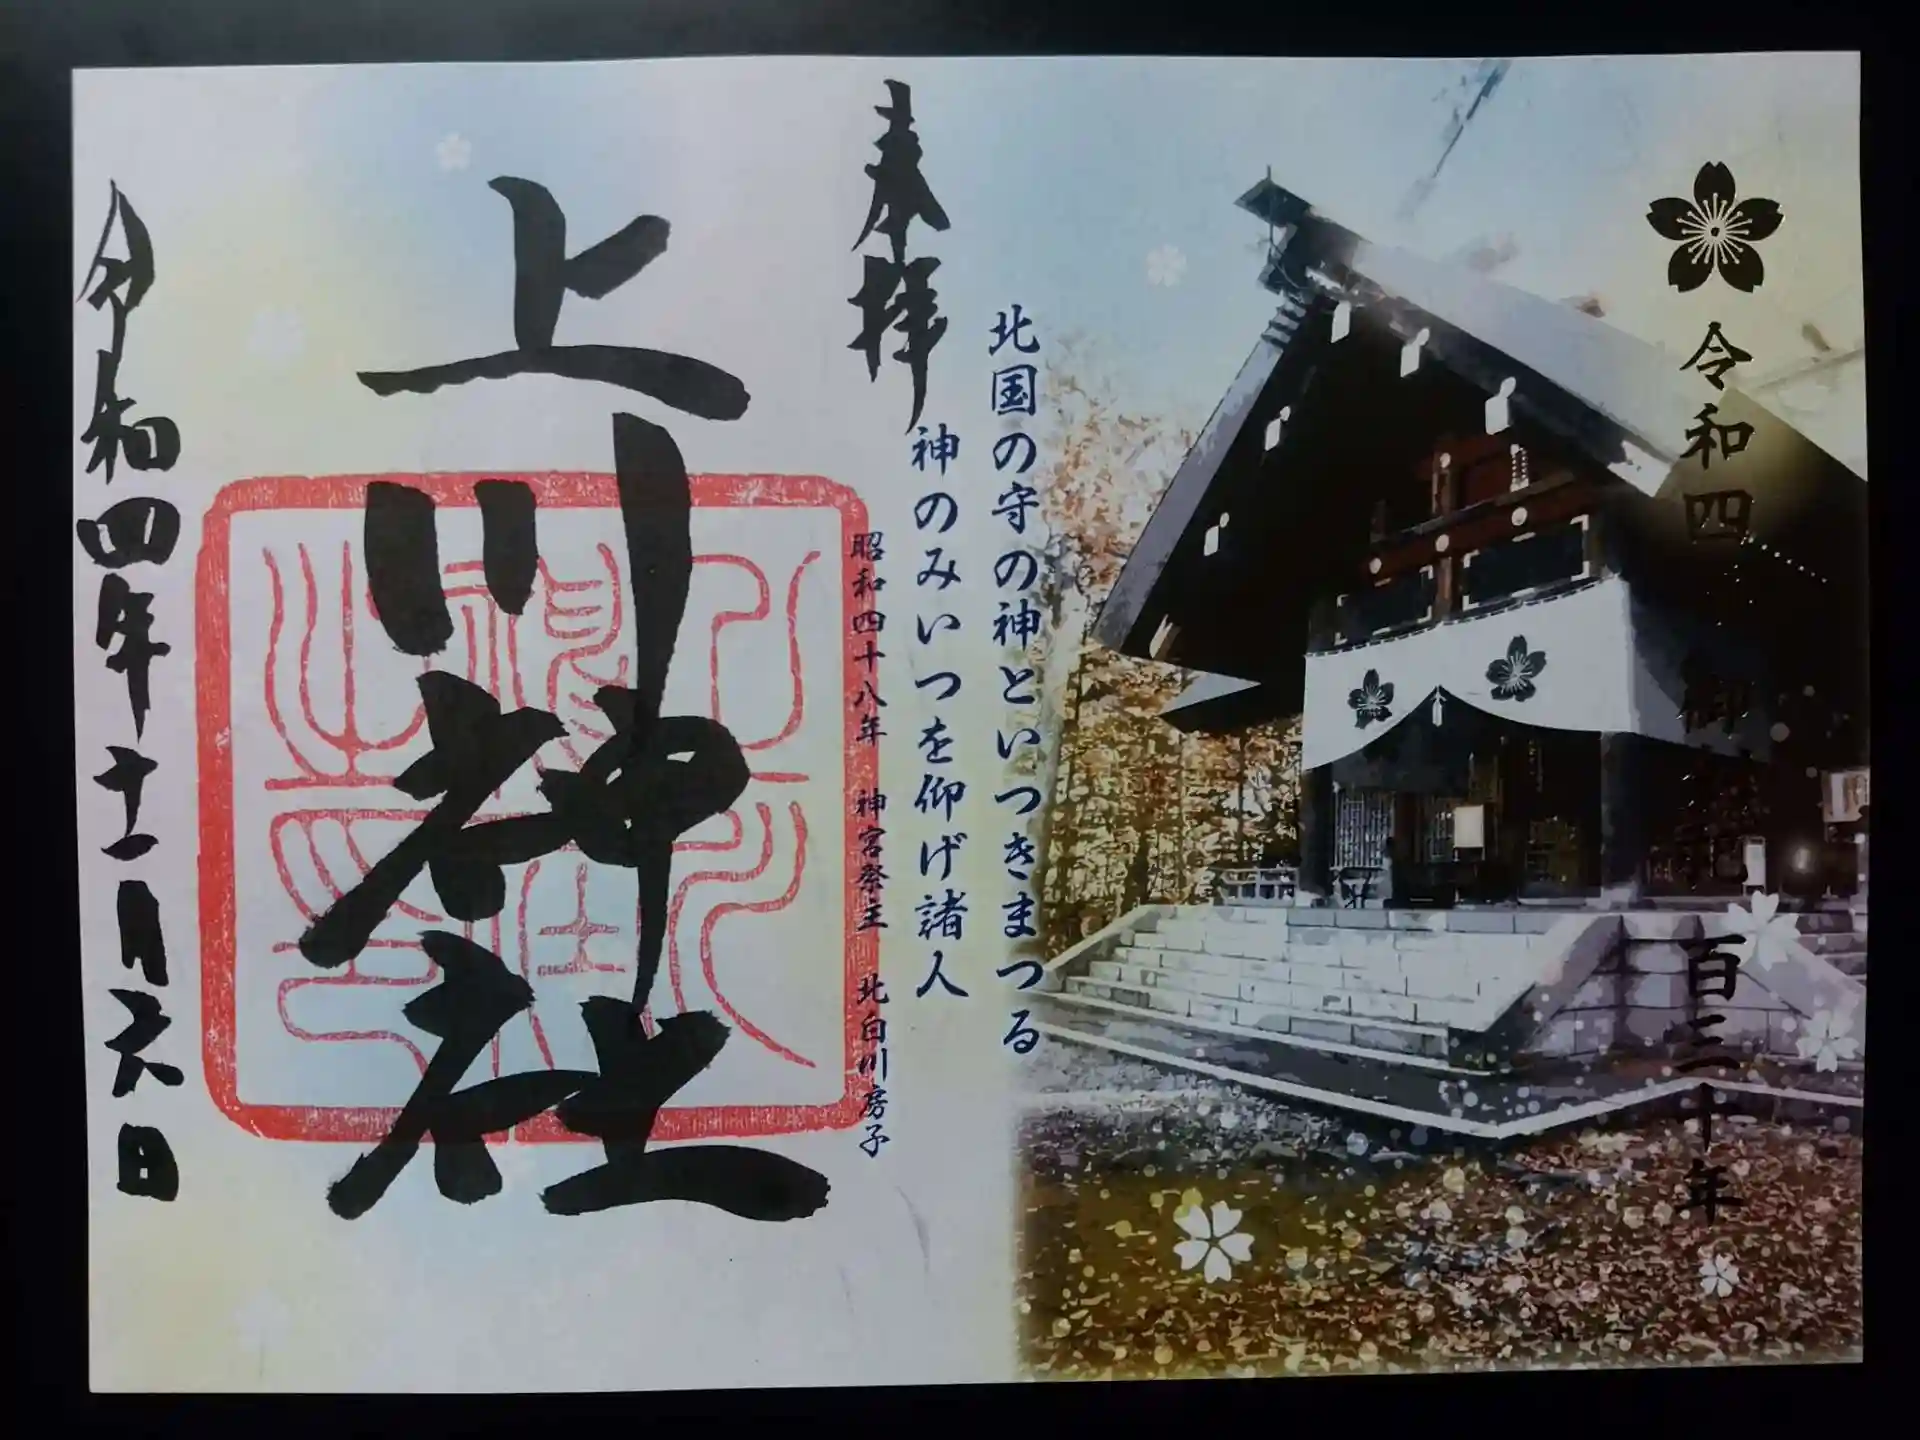 令和四
御
百三十年
北国の守の神といつきまつる
神のみいつを仰げ諸人
昭和四十八年 神宮祭主 北白川房子
奉拝
上川神社
令和四年十一月六日